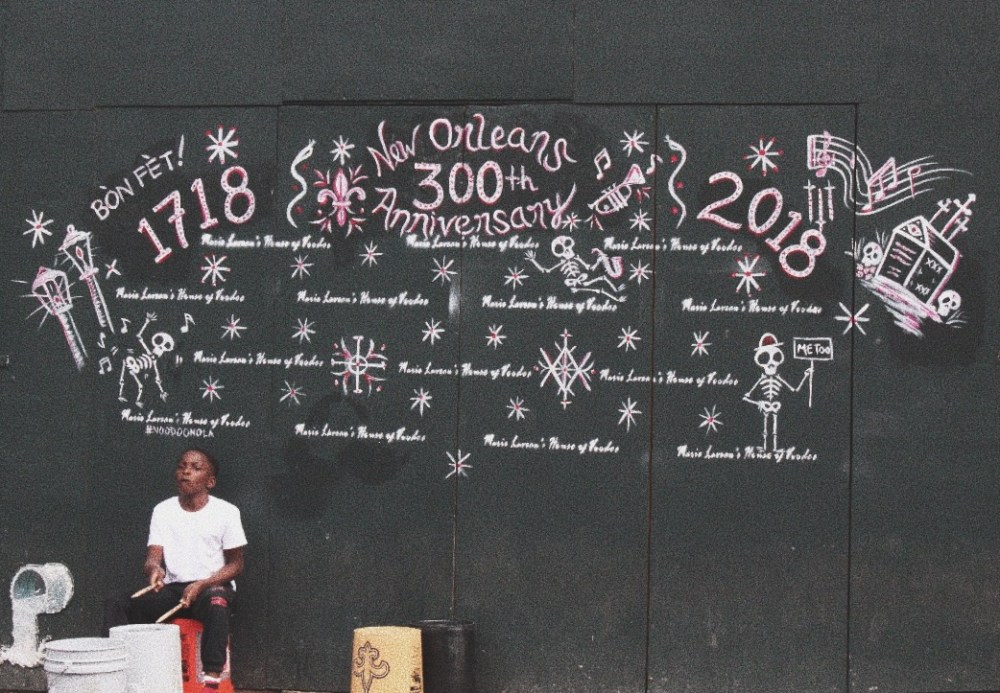 BÒN FÈT!
1718
New Orleans
300th
Anniversary
2018
Marie Laveau's House of Voodoo
Marie Laveau's House of Voodoo
Marie Laveau's House of Voodoo
Marie Laveau's House of Voodoo
Marie Laveau's House of Voodoo
Marie Laveau's House of Voodoo
Marie Laveau's House of Voodoo
XXX
ME TOO
Marie Laveau's House of Voodoo
Marie Laveau's House of Voodoo
Marie Laveau's House of Voodoo
Marie Laveau's House of Voodoo
#VOODOONOLA
Marie Laveau's House of Voodoo
Marie Laveau's House of Voodoo
Marie Laveau's House of Voodoo